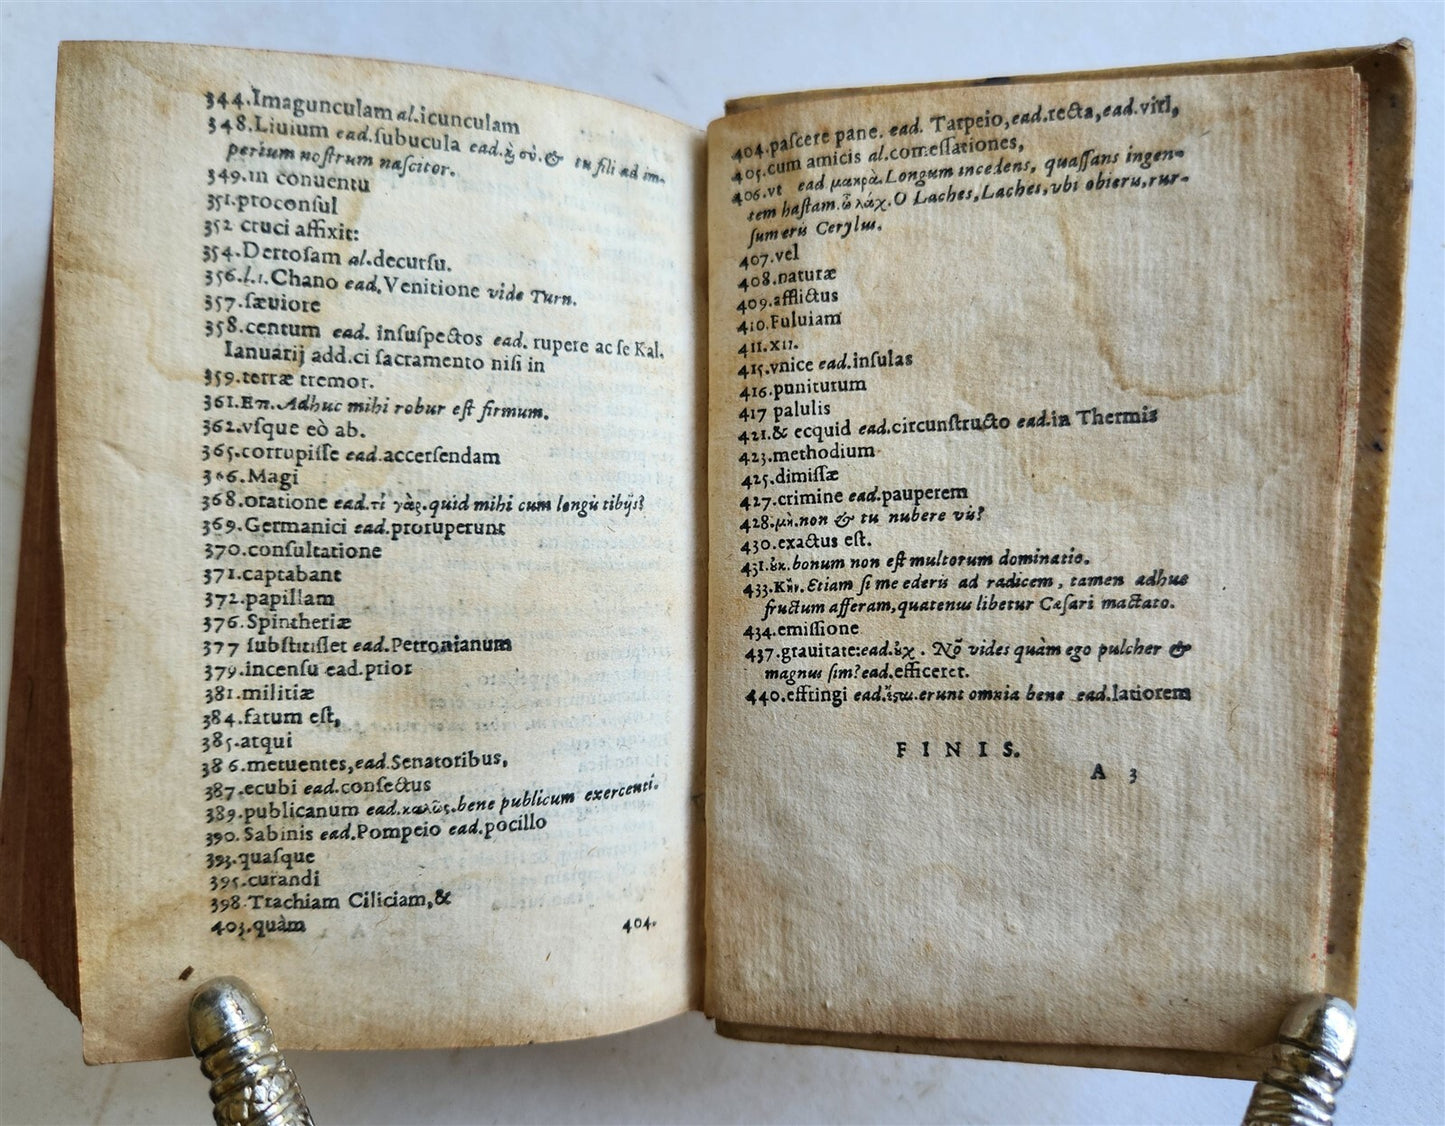 344.Imagunculam al.icunculam
348.Liuium ead.ſubucula ead.ὴ σὺ.& tu fili ad im-
perium noſtrum naſcitor.
349.in conuentu
351.proconſul
352 cruci affixit:
354.Dertoſam al.decurſu.
356.l.1.Chano ead.Venitione vide Turn.
357.ſæuiore
358.centum ead. inſuſpectos ead. rupere ac ſe Kal.
Ianuarij add.ci ſacramento niſi in
359.terræ tremor.
361.Επ.Adhuc mihi robur eſt firmum.
362.vſque eò ab.
365.corrupiſſe ead.accerſendam
366.Magi
368.oratione ead.τί γὰρ.quid mihi cum longis tibijs?
369.Germanici ead.protuperunt
370.conſultatione
371.captabant
372.papillam
376.Spintheriæ
377 ſubſtitiſſet ead.Petronianum
379.incenſu ead.prior
381.militiæ
384.fatum eſt,
385.atqui
386.metuentes,ead.Senatoribus,
387.ecubi ead.conſectus
389.publicanum ead.καλῶς.bene publicum exercenti.
390.Sabinis ead.Pompeio ead.pocillo
393.quaſque
395.curandi
398.Trachiam Ciliciam,&
403.quàm
404.
404.paſcere pane. ead. Tarpeio,ead.recta,ead.viti,
405.cum amicis al.comeſſationes,
406.vt ead μακρὰ.Longum incedens, quaſſans ingen-
tem haſtam.ὦ λάχ.O Laches,Laches,vbi obieru,rur-
ſum eris Cerylus.
407.vel
408.naturæ
409.afflictus
410.Fuluiam
411.XII.
415.vnice ead.inſulas
416.punitutum
417 palulis
421.& ecquid ead.circunſtructo ead.in Thermis
423.methodium
425.dimiſſæ
427.crimine ead.pauperem
428.μὴ.non & tu nubere vis?
430.exactus eſt.
431.ȣκ.bonum non eſt multorum dominatio.
433.Κἤν.Etiam ſi me ederis ad radicem, tamen adhuc
fructum afferam,quatenus libetur Cæſari mactato.
434.emiſſione
437.grauitate:ead.ȣχ. Nō vides quàm ego pulcher &
magnus ſim?ead.efficeret.
440.effringi ead.ἴςω.erunt omnia bene ead.latiorem
FINIS.
A 3